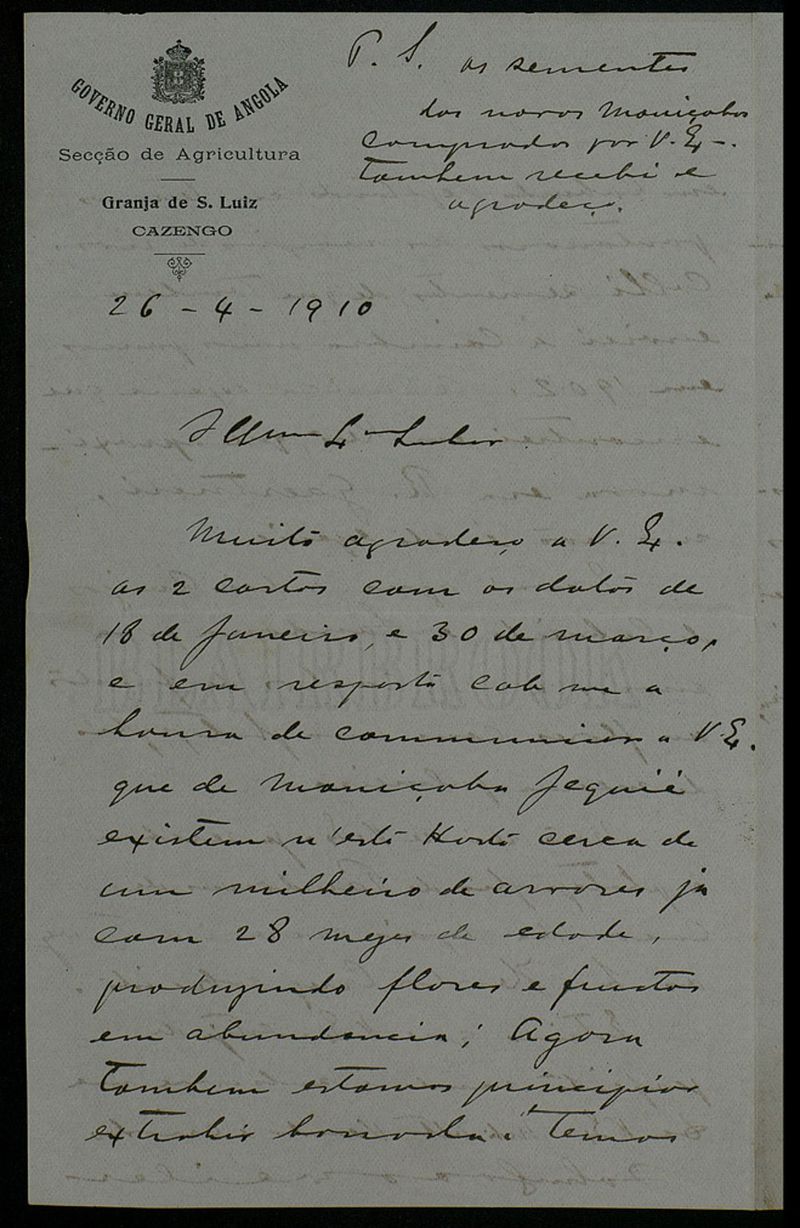 GOVERNO GERAL DE ANGOLA
Secção de Agricultura
Granja de S. Luiz
CAZENGO
P. S. as sementes
das novas Maniçobas
compradas por V. Ex.
tambem recebi e
agradeço.
26-4-1910
Illmo Ex Senhor
Muito agradeço a V. Ex.
as 2 cartas com as datas de
18 de Janeiro, e 30 de março,
e em resposta cabe me a
honra de communicar a V. Ex.
que de Maniçoba Jequié
existem n'esta Horta cerca de
um milheiro de arvores ja
com 28 mezes de edade,
produzindo flores e fructos
em abundancia; Agora
tambem estamos principiar
extrahir borracha: Temos